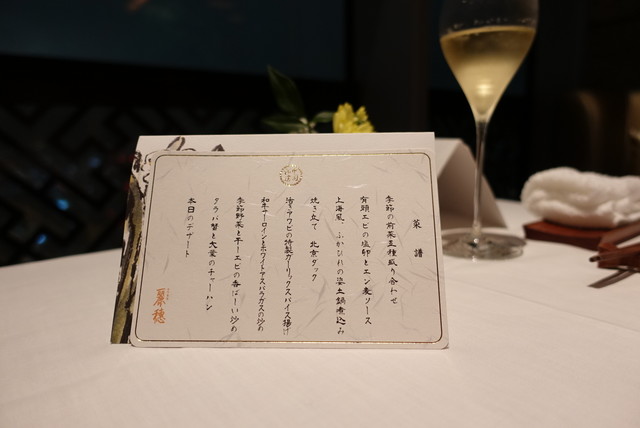 菜譜
季節の前菜五種盛り合わせ
有頭エビの塩卵とエン麦ソース
上海風、ふかひれの姿土鍋煮込み
焼き立て 北京ダック
活アワビの特製ガーリックスパイス揚げ
和牛サーロインとホワイトアスパラガスの炒め
季節野菜と干しエビの香ばしい炒め
タラバ蟹と大葉のチャーハン
本日のデザート